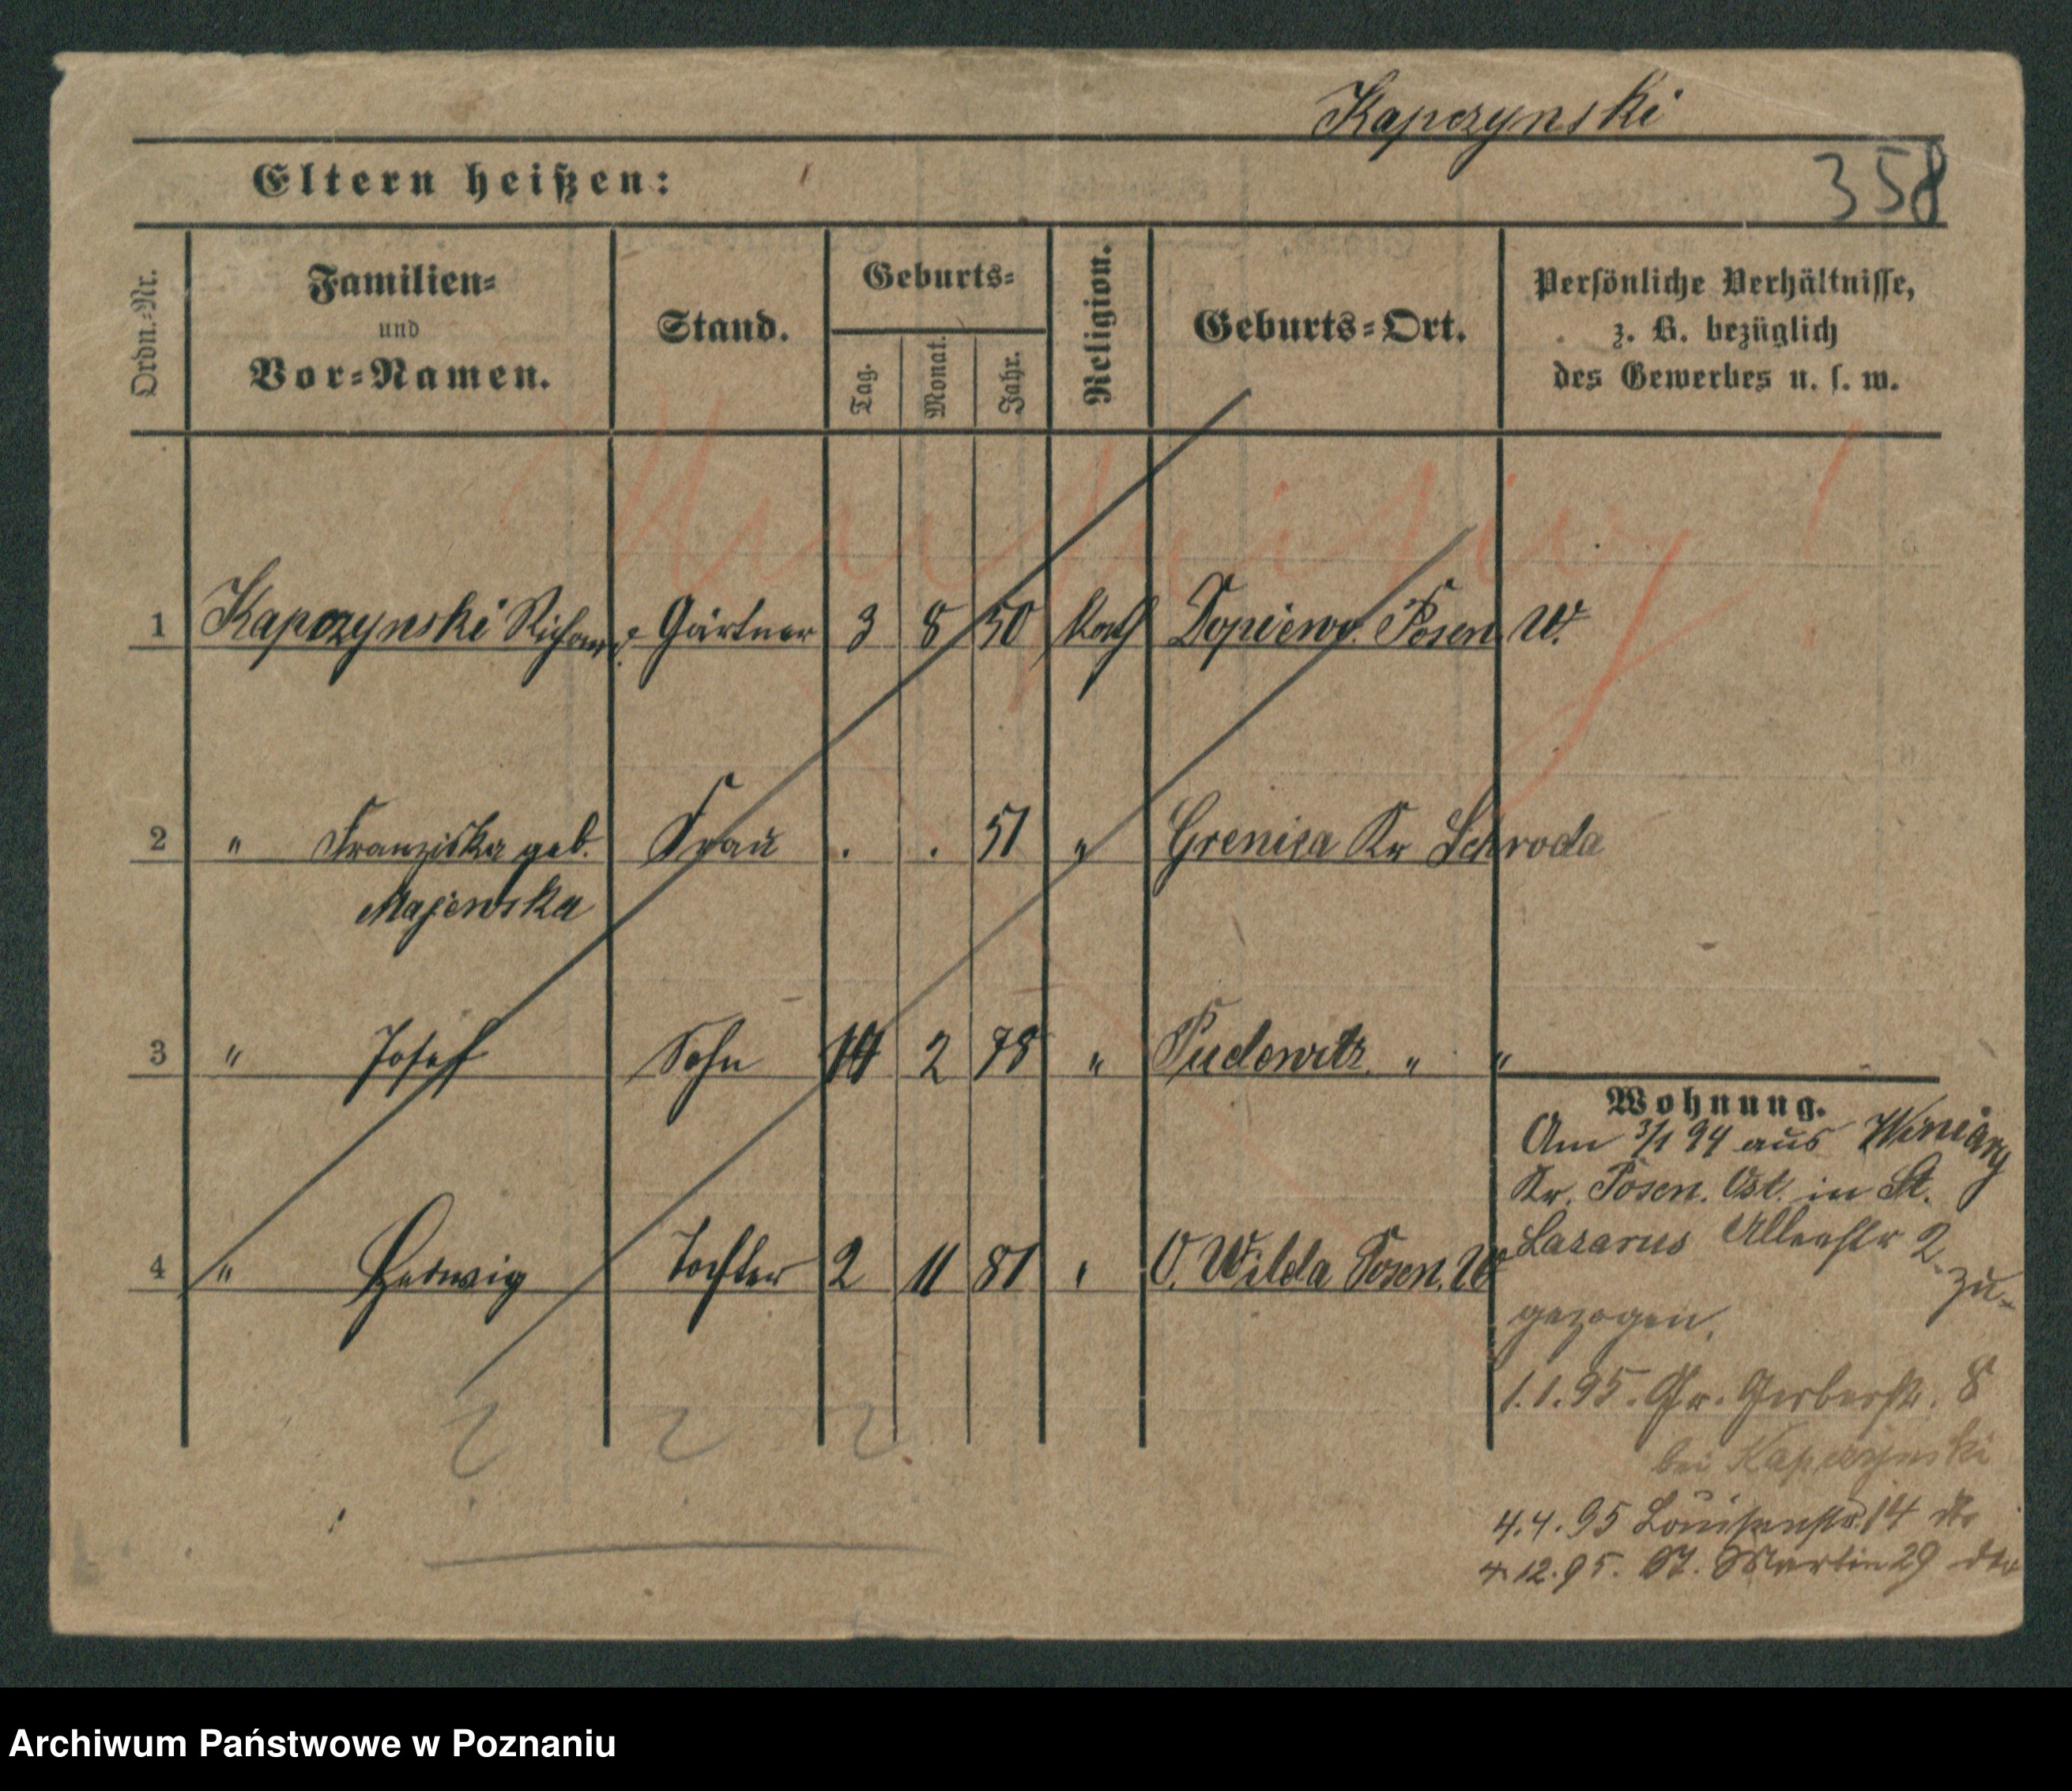 Kapczynski
Eltern heißen:
358
Ordn.-Nr.
Familien- und Vor-Namen.
Stand.
Geburts-
Tag.
Monat.
Jahr.
Religion.
Geburts-Ort.
Persönliche Verhältnisse,
z. B. bezüglich
des Gewerbes u. s. w.
1 Kapczynski Richard Gärtner 3 8 50 kath Dopiewo. Posen W.
2 " Franziska geb. Frau . . 51 " Grenica Kr Schroda
Majewska
3 " Josef Sohn 2 78 " Pudewitz. " "
4 " Hedwig Tochter 2 11 81 " O. Wilda Posen. W
Wohnung.
Am 3/1 94 aus Winiary
Kr. Posen. Ost. in St.
Lazarus Alleestr 2. zu-
gezogen.
1.1.95. Gr. Gerberstr. 8
bei Kapczynski
4.4.95 Louisenstr. 14 dto
4.12.95. St. Martin 29 dto
Archiwum Państwowe w Poznaniu